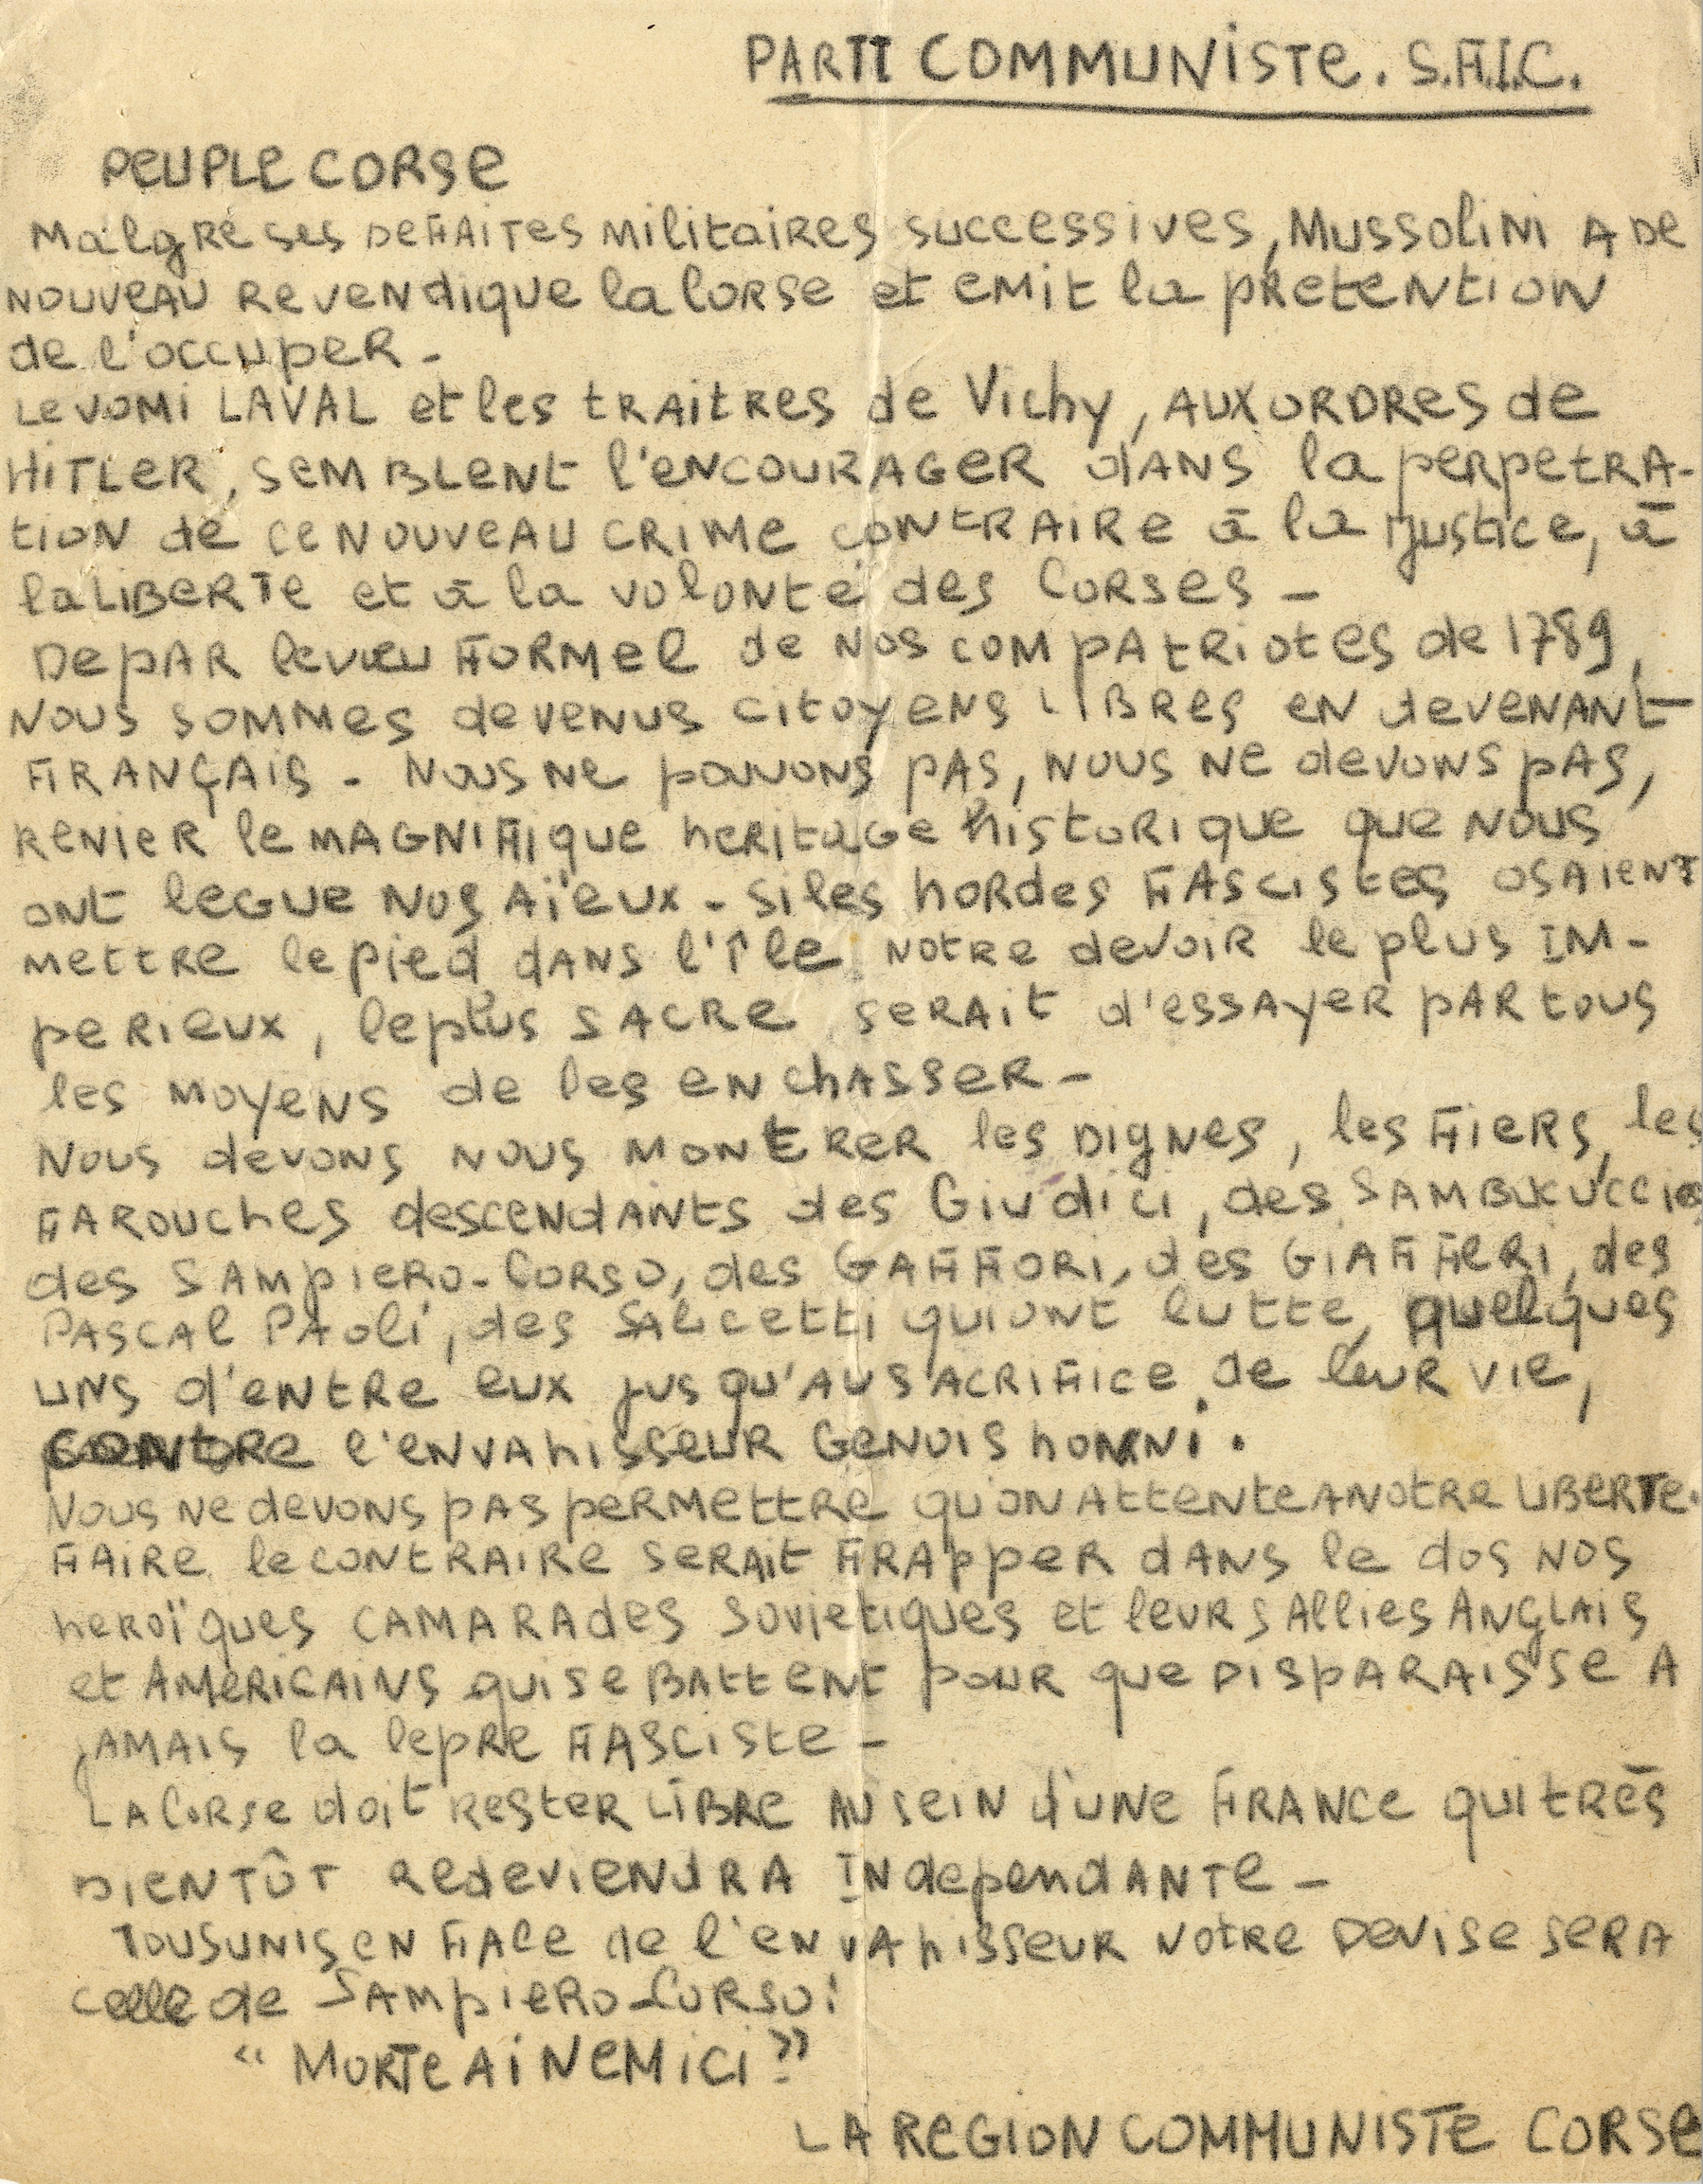 PARTI COMMUNISTE. S.F.I.C.
PEUPLE CORSE
Malgré ses DEFAITES militaires successives, Mussolini A DE
NOUVEAU REVENDIQUE la CORSE et EMIT la PRETENTION
de l'occuper -
Le VOMI LAVAL et les TRAITRES de Vichy, AUX ORDRES de
HITLER, SEMBLENT l'ENCOURAGER dANS la perpetRA-
tion de CE NOUVEAU CRIME CONTRAIRE à la justice, à
la LIBERTE et à la VOLONTé des CORSES -
DE PAR le VŒU FORMEL de NOS COMPATRIOTES de 1789,
NOUS SOMMES devenus citoyens LIBRES en devenant
FRANÇAIS - NOUS NE pouvons pAS, NOUS NE devons pAS,
RENIER le MAGNIFIQUE heritage historique que NOUS
ONT legue NOS AÏEUX - Si les hordes FASCISTES OSAIENT
mettre le pied dANS l'île notre devoir le plus IM-
perieux, le plus SACRE serait d'essayer par tous
les moyens de les en chasser -
NOUS devons nous montrer les DIGNES, les FIERS, les
FAROUChes descendants des Giudici, des SAMBUCUCCIO
des SAMPIERO-CORSO, des GAFFORI, des GIAFFERI, des
PASCAL PAoli, des SALicetti qui ont lutte, quelques
UNS d'entre eux jusqu'au SACRIFICE de leur vie,
CONTRE l'envahisseur GENOIS honni.
NOUS NE devons pas permettre qu'on ATTENTE A NOTRE LIBERTE.
FAIRE le CONTRAIRE serait FRApper dANS le dos NOS
heroïques CAMARAdes soviétiques et leurs Allies ANGLAIS
et AMERICAINS qui se BATTENT pour que DISPARAISSE A
JAMAIS la lepre FASCISTE -
LA CORSE doit rester LIBRE AU SEIN d'UNE FRANCE qui très
BIENTÔT REDEVIENDRA INDépendANTE -
TOUS UNIS EN FACE de l'envahisseur notre DEVISE SERA
celle de SAMPIERO-CORSO:
“ MORTE AI NEMICI!”
LA REGION COMMUNISTE CORSE